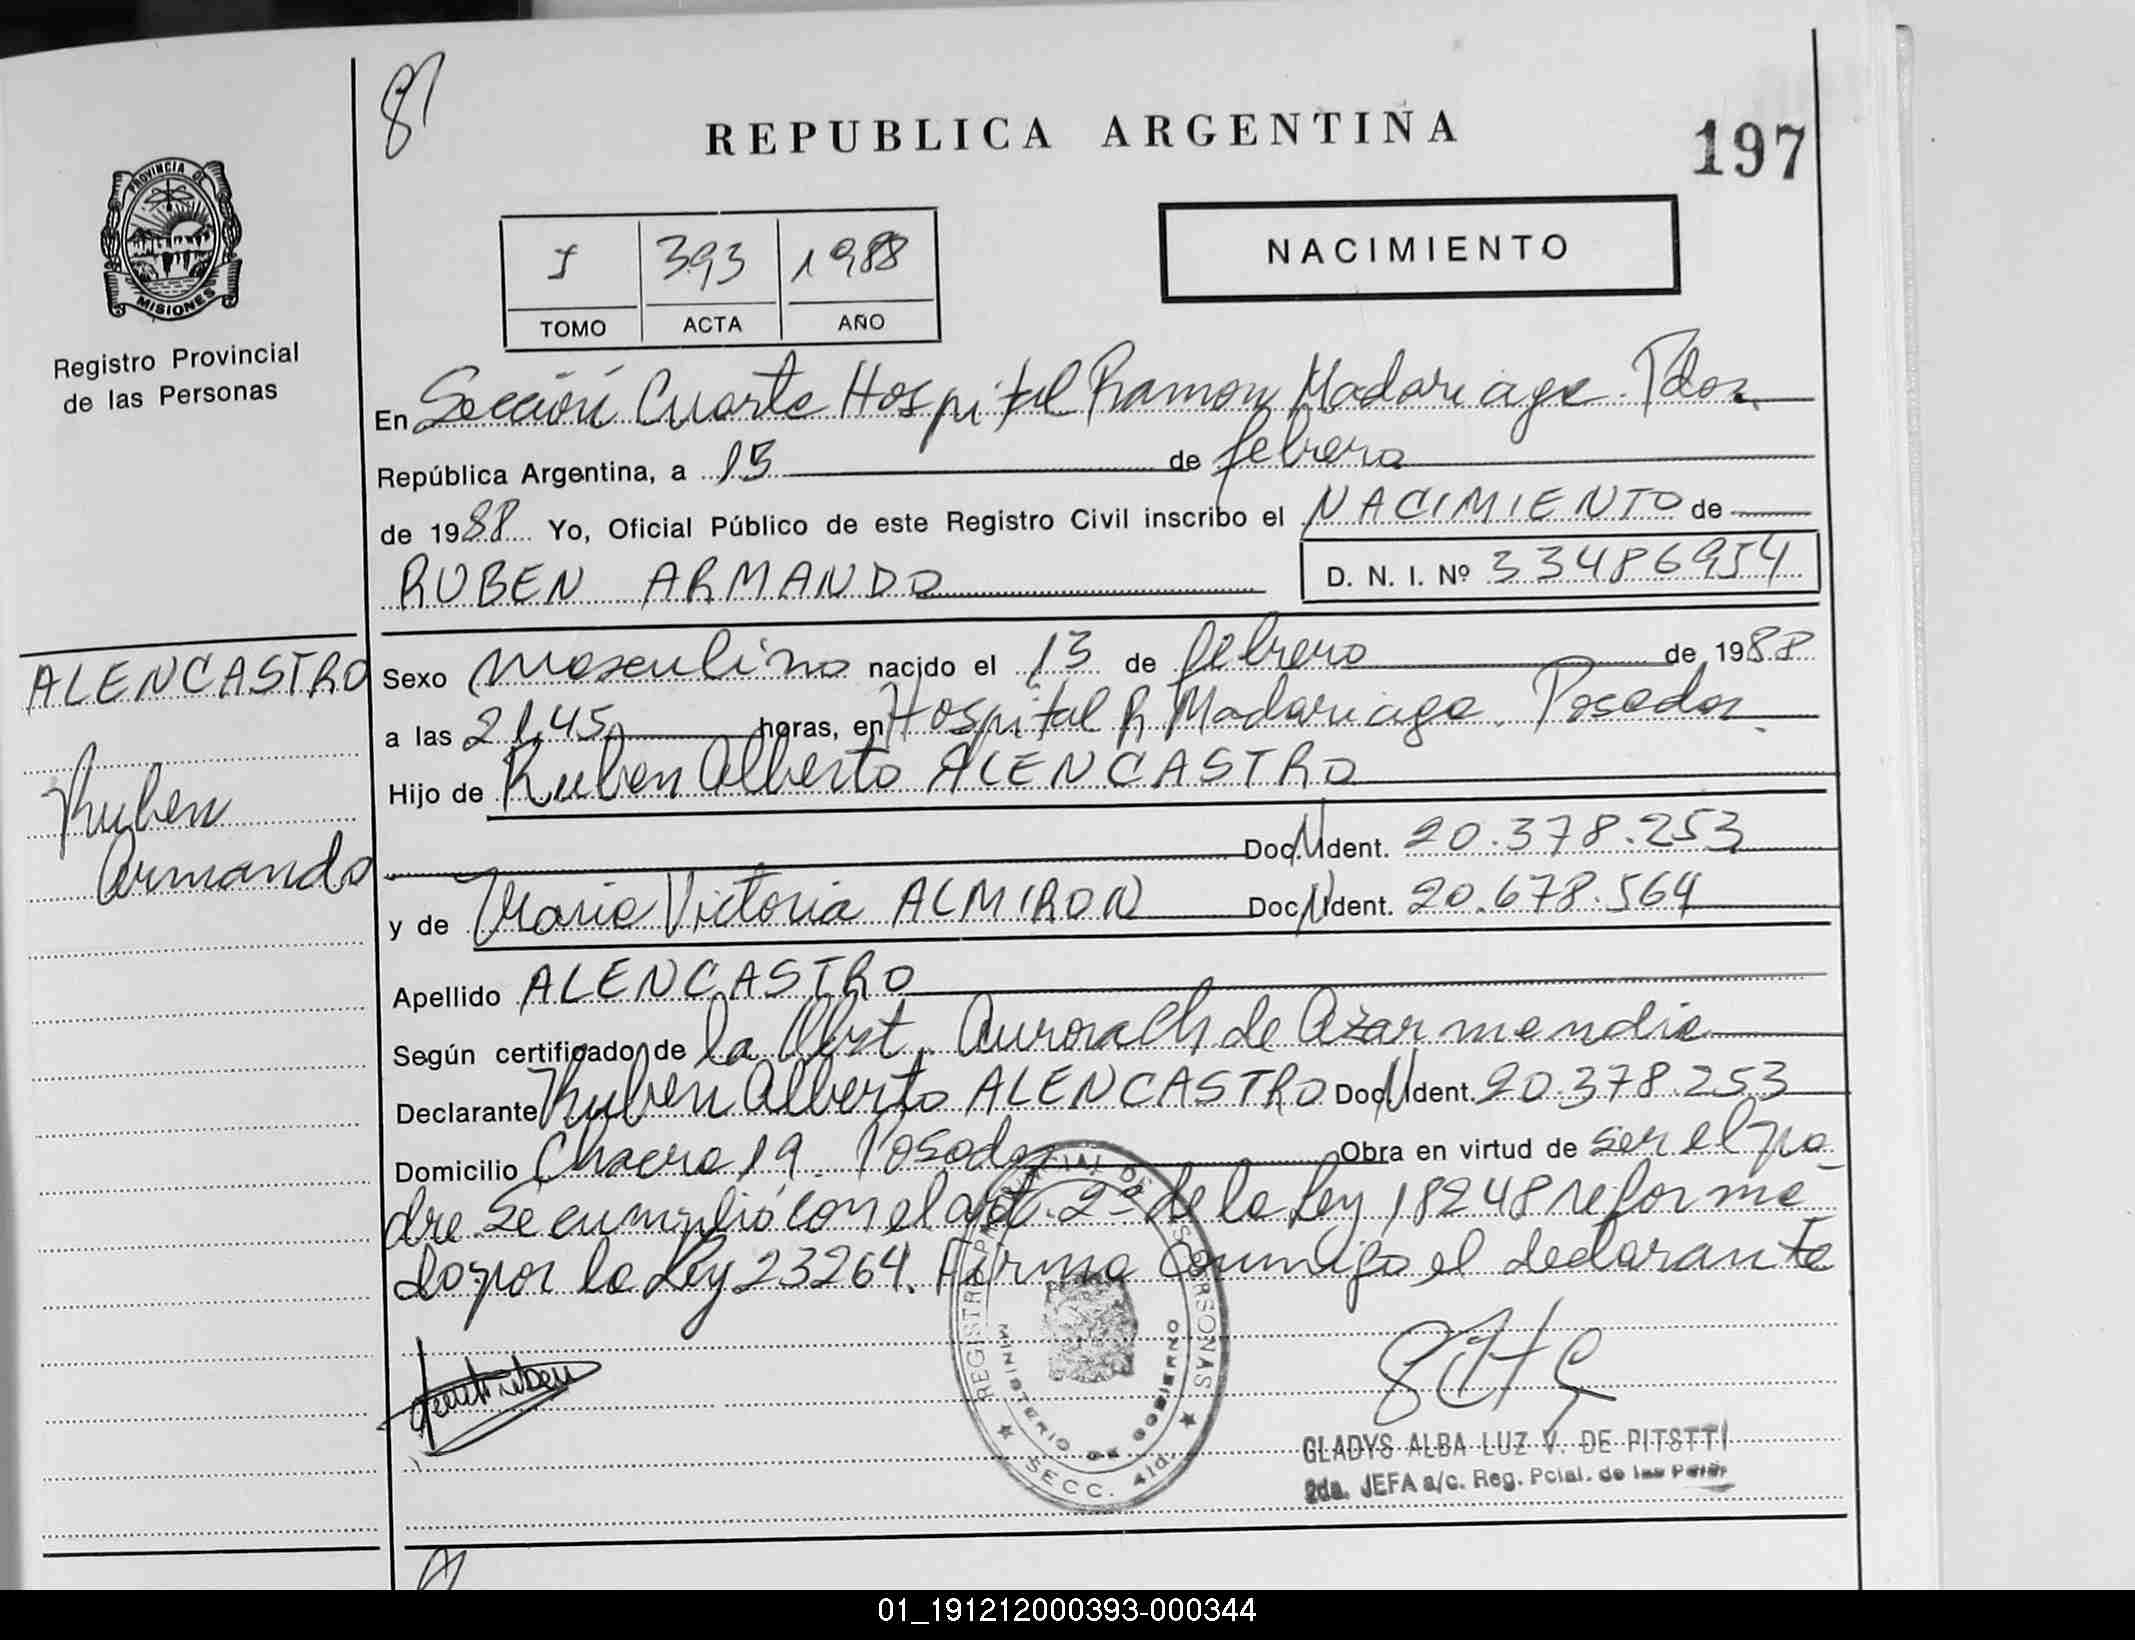 81
REPUBLICA ARGENTINA
197
PROVINCIA DE
MISIONES
Registro Provincial
de las Personas
I 393 1988
TOMO ACTA AÑO
NACIMIENTO
En Sección Cuarta Hospital Ramon Madariaga. Pdas.
República Argentina, a 15 de febrero
de 1988 Yo, Oficial Público de este Registro Civil inscribo el NACIMIENTO de
RUBEN ARMANDO D. N. I. Nº 33486954
ALENCASTRO
Ruben
Armando
Sexo masculino nacido el 13 de febrero de 1988
a las 21,45 horas, en Hospital R Madariaga. Posadas.
Hijo de Ruben Alberto ALENCASTRO
Doc. N Ident. 20.378.253
y de Maria Victoria ALMIRON Doc. N Ident. 20.678.564
Apellido ALENCASTRO
Según certificado de la Obst. Aurora Ch de Azarmendia
Declarante Ruben Alberto ALENCASTRO Doc. N Ident. 20.378.253
Domicilio Chacra 19. Posadas Obra en virtud de ser el pa-
dre. Se cumplió con el art. 2º de la Ley 18248 reforma-
do por la Ley 23264. Firma conmigo el declarante
REGISTRO PROVINCIAL DE LAS PERSONAS
MINISTERIO DE GOBIERNO
SECC. 4ta.
GLADYS ALBA LUZ V. DE PITSTTI
2da. JEFA a/c. Reg. Pcial. de las Pers.
01_191212000393-000344